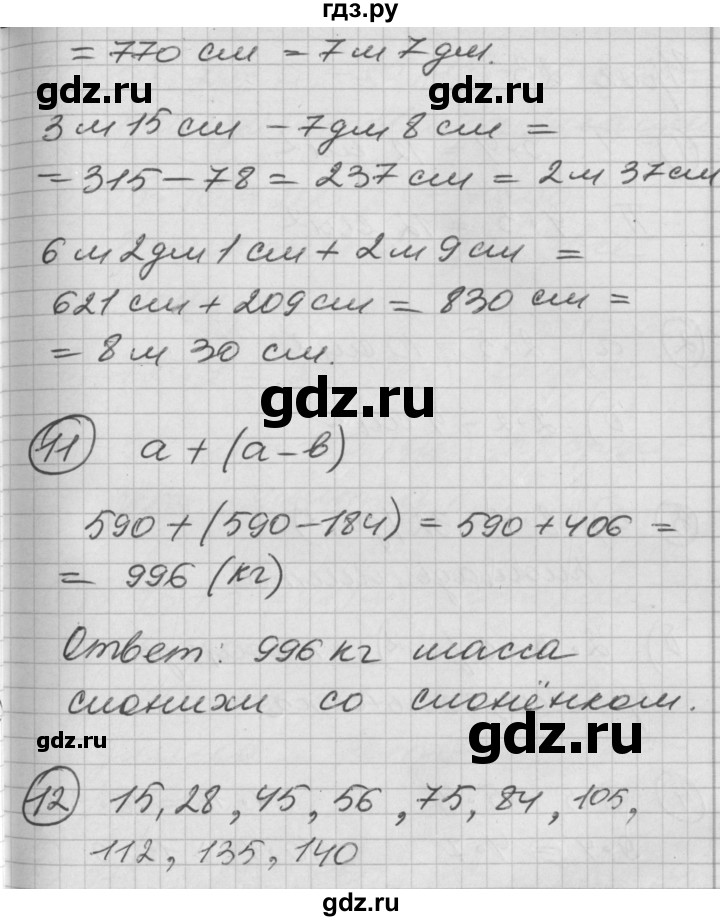 гдз.ру
= 770 см = 7 м 7 дм.
gdz.ru gdz.ru
3 м 15 см - 7 дм 8 см =
= 315 - 78 = 237 см = 2 м 37 см
6 м 2 дм 1 см + 2 м 9 см =
621 см + 209 см = 830 см =
= 8 м 30 см.
gdz.ru
11 а + (а - в)
590 + (590 - 184) = 590 + 406 =
= 996 (кг)
Ответ: 996 кг масса
слонихи со слонёнком.
gdz.ru gdz.ru
12 15, 28, 45, 56, 75, 84, 105,
112, 135, 140
gdz.ru gdz.ru